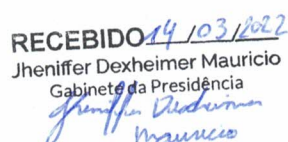 RECEBIDO 14/03/2022
Jheniffer Dexheimer Mauricio
Gabinete da Presidência
Jheniffer Dexheimer
Mauricio